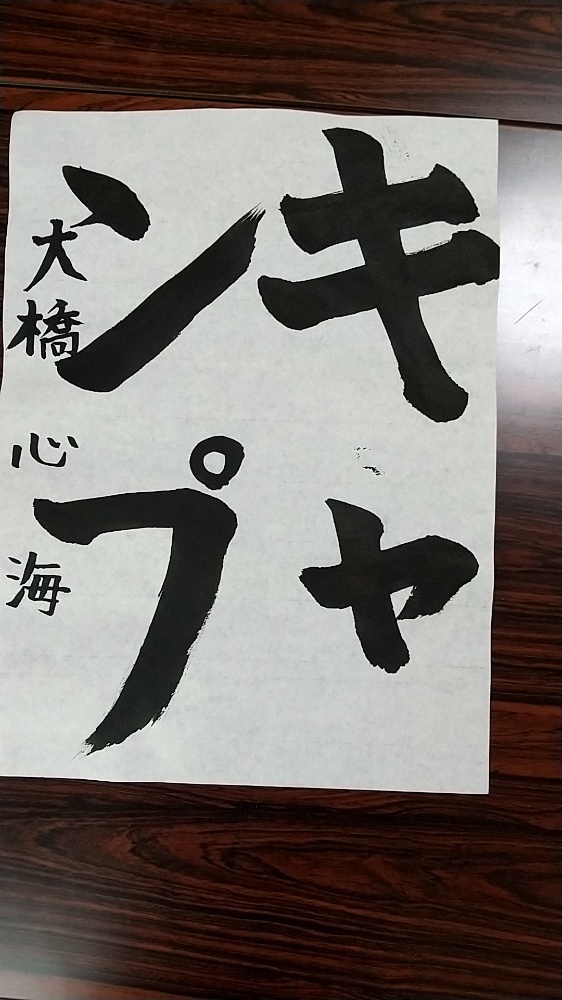 キャ
ンプ
大橋心海